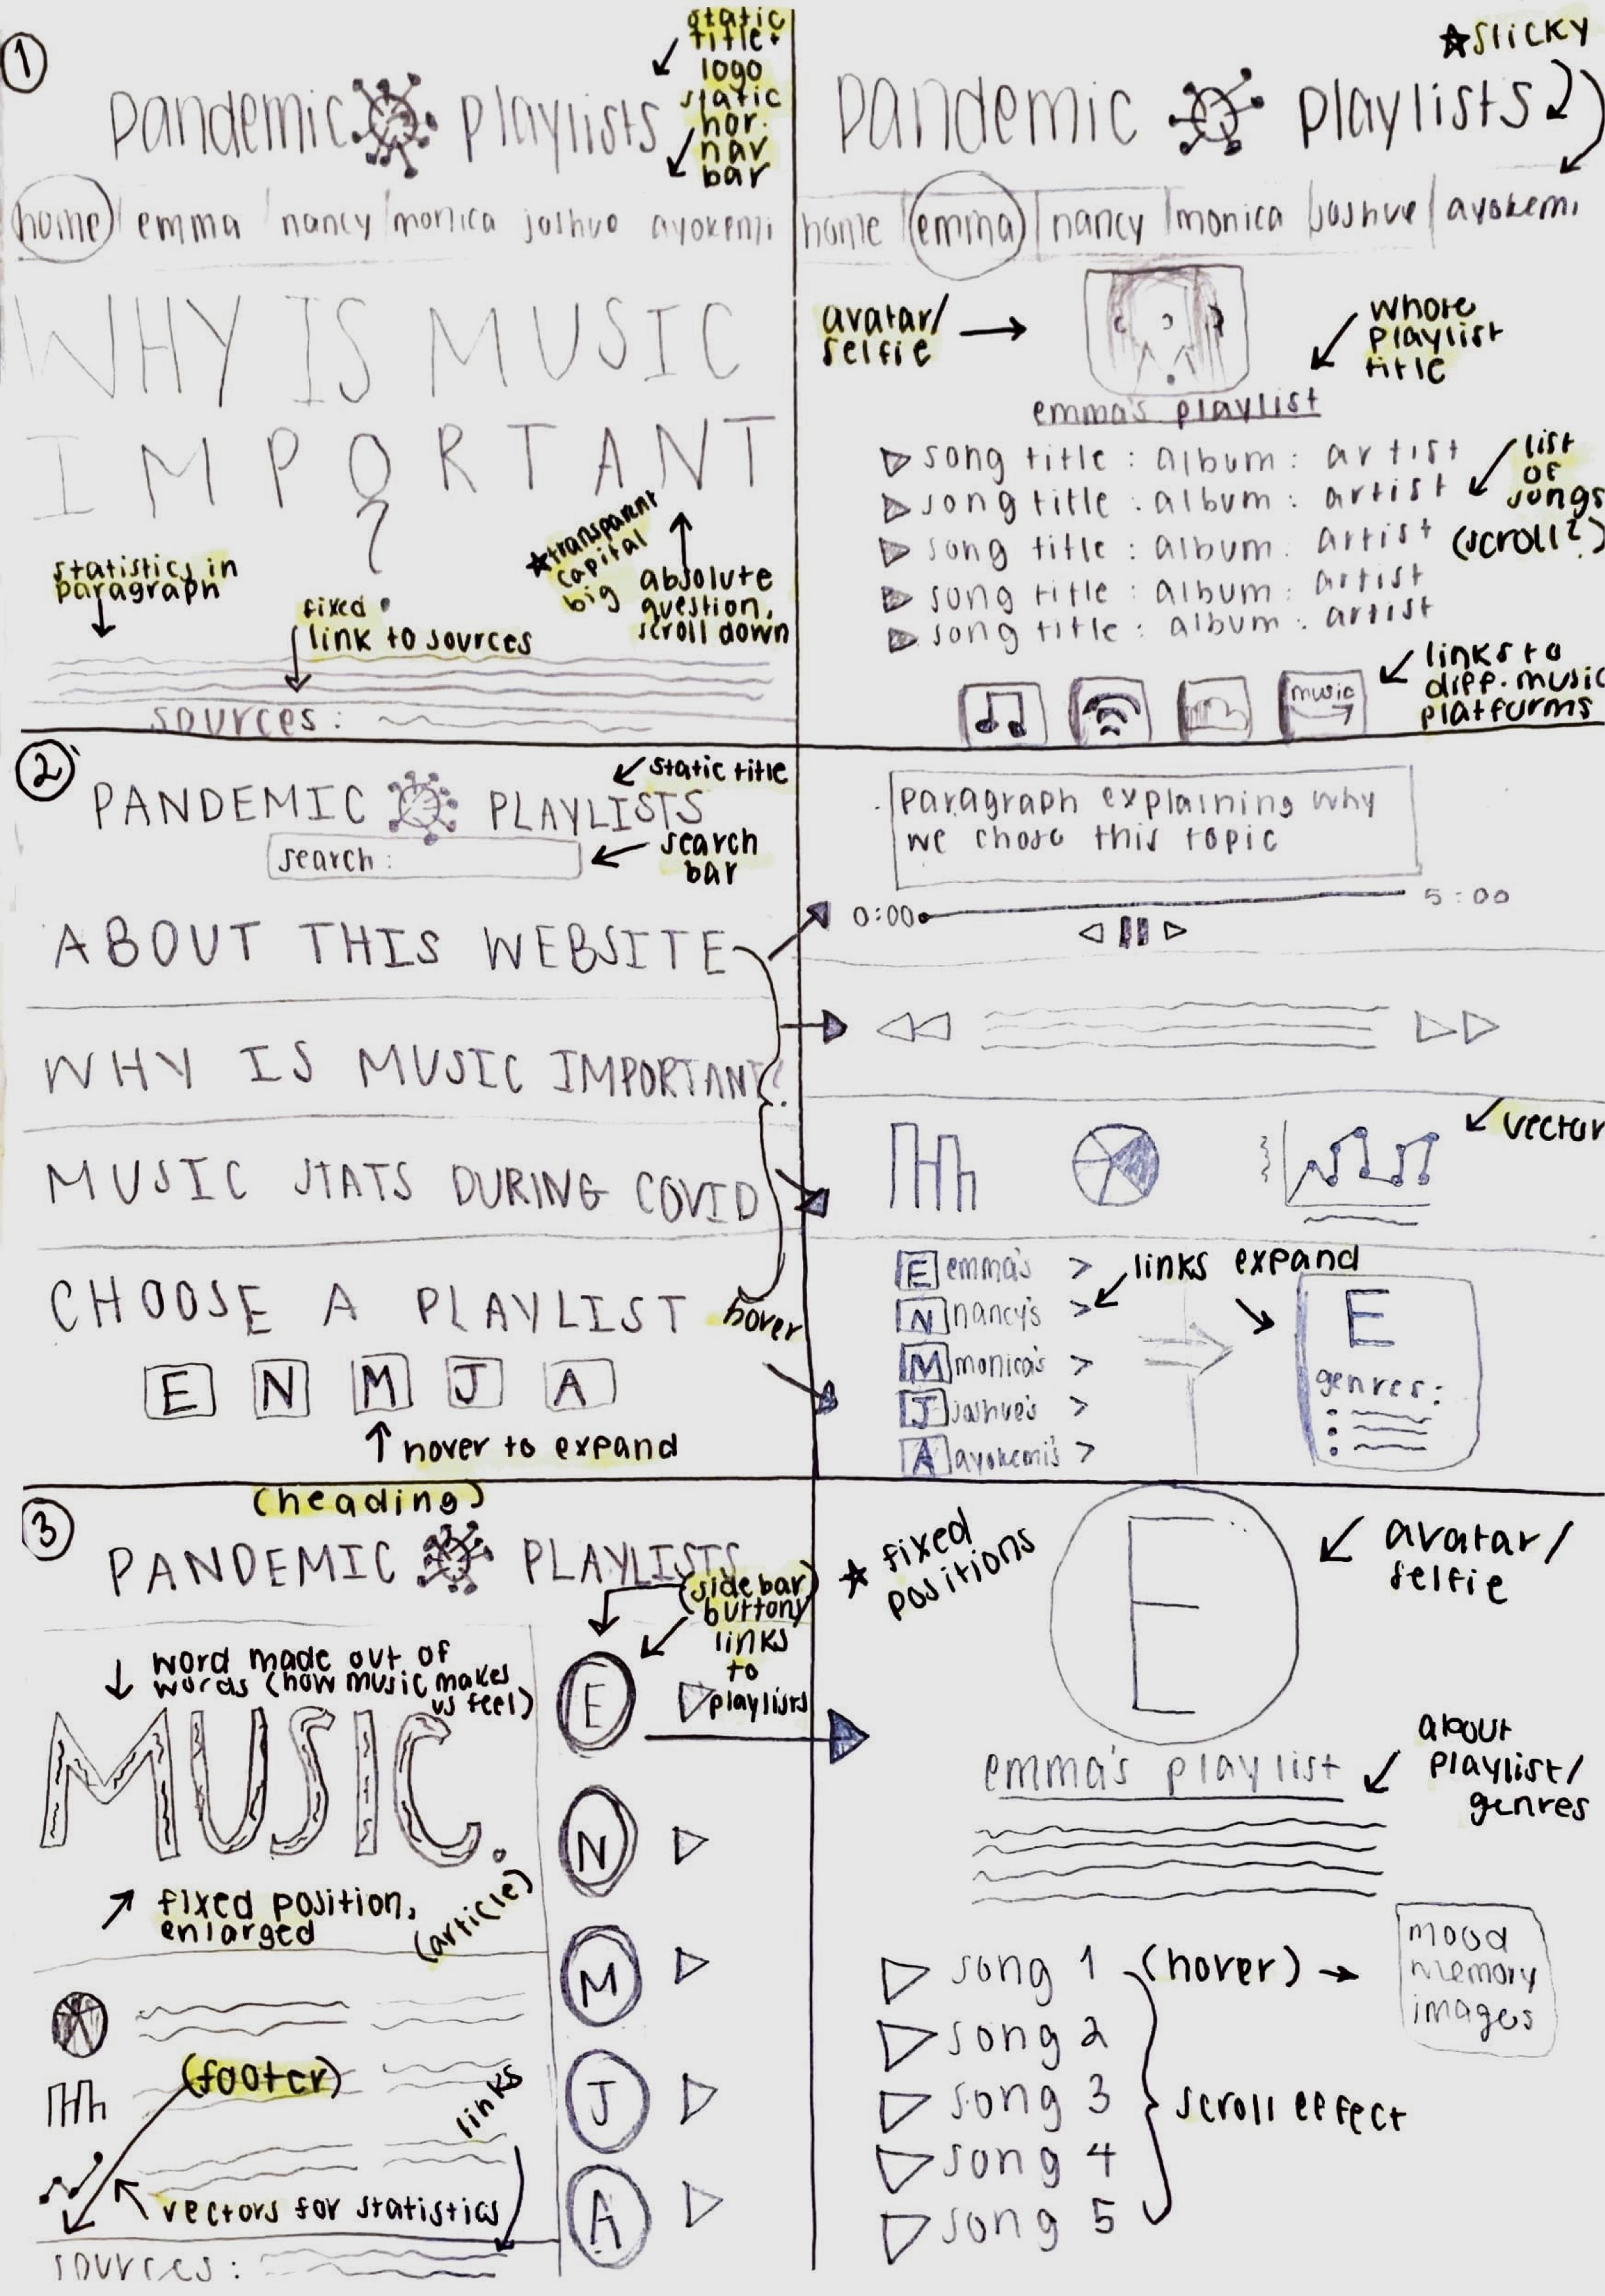 1
static
title +
logo
static
hor.
nav
bar
pandemic playlists
home / emma / nancy / monica joshue ayokemi
WHY IS MUSIC
IMPORTANT
?
★transparent
capital
big
absolute
question,
scroll down
statistics in
paragraph
fixed
link to sources
sources:
★sticky
pandemic playlists
home | emma | nancy | monica | joshue | ayokemi
avatar/
selfie
whose
playlist
title
emma's playlist
song title : album : artist
song title : album : artist
song title : album : artist
song title : album : artist
song title : album : artist
list
of
songs
(scroll?)
music
links to
diff. music
platforms
2
static title
PANDEMIC PLAYLISTS
search:
search
bar
ABOUT THIS WEBSITE
WHY IS MUSIC IMPORTANT?
MUSIC STATS DURING COVID
CHOOSE A PLAYLIST
hover
E N M J A
hover to expand
paragraph explaining why
we chose this topic
0:00 5:00
vector
E emma's >
N nancy's >
M monica's >
J joshue's >
A ayokemi's >
links expand
E
genres:
3
(heading)
PANDEMIC PLAYLISTS
(sidebar)
buttons
links
to
playlists
word made out of
words (how music makes
us feel)
MUSIC.
fixed position,
enlarged
(article)
E
N
M
J
A
(footer)
links
vectors for statistics
sources:
★ fixed
positions
E
avatar/
selfie
emma's playlist
about
playlist/
genres
song 1 (hover) →
song 2
song 3
song 4
song 5
scroll effect
mood
memory
images